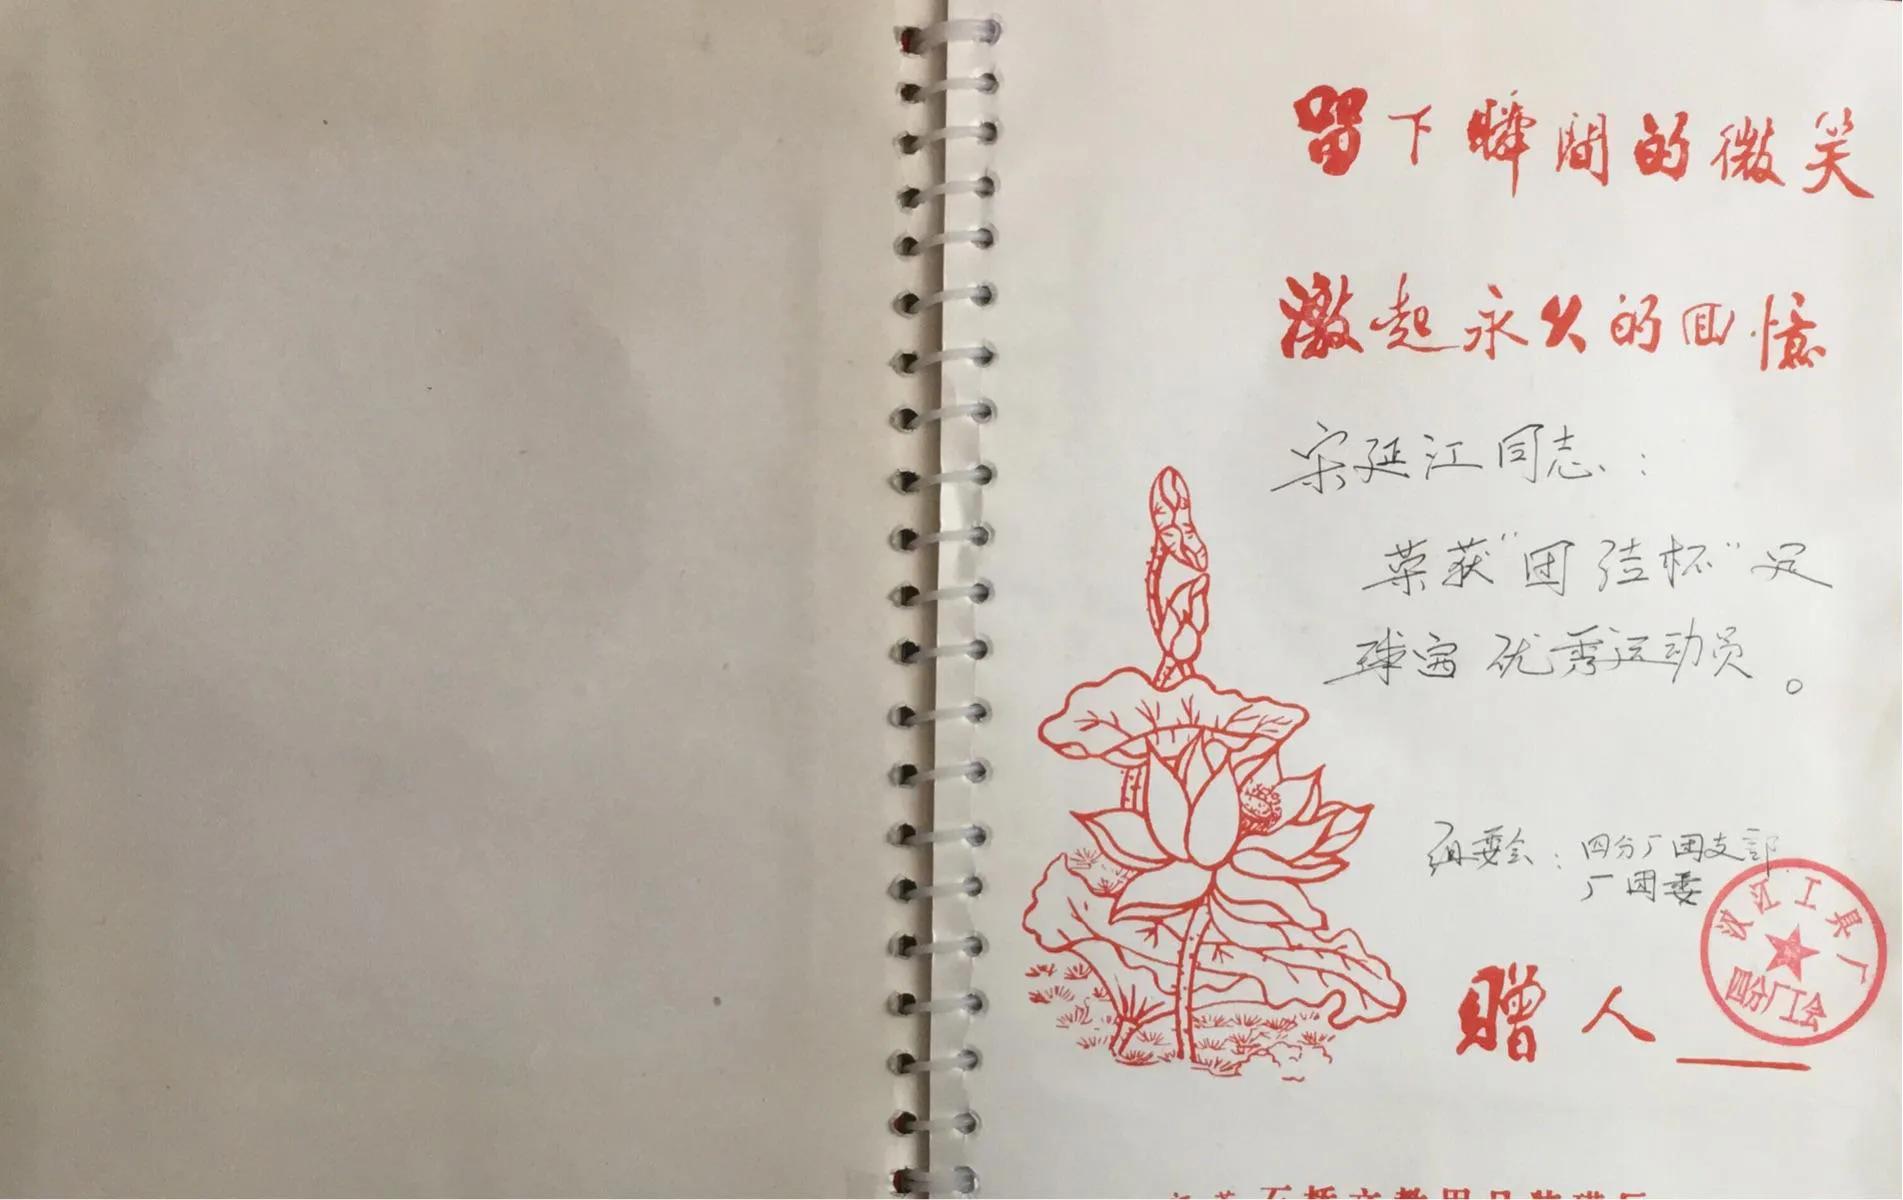 留下瞬間的微笑
激起永久的回憶
宋延江同志：
荣获“团结杯”足
球赛优秀运动员。
组委会：四分厂团支部
厂团委
汉江工具厂
四分厂工会
赠人